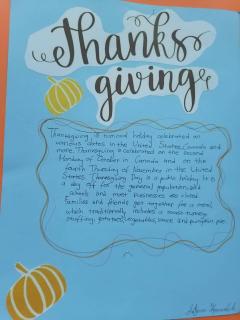 Thanks
giving
Thanksgiving is national holiday celebrated on
various dates in the United States, Canada and
more. Thanksgiving is celebrated on the second
Monday of October in Canada and on the
fourth Thursday of November in the United
States. Thanksgiving Day is a public holiday. It is
a day off for the general population, and
schools and most businesses are closed
Families and friends get together for a meal,
which traditionally includes a roast turkey,
stuffing, potatoes, vegetables, sauce and pumpkin pie.